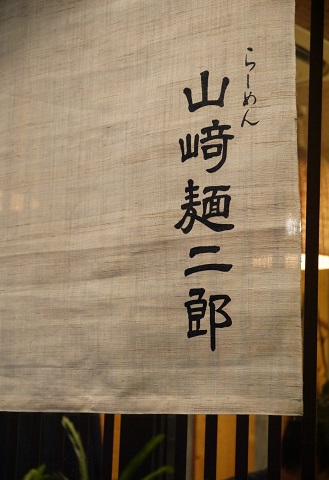 らーめん
山﨑麺二郎